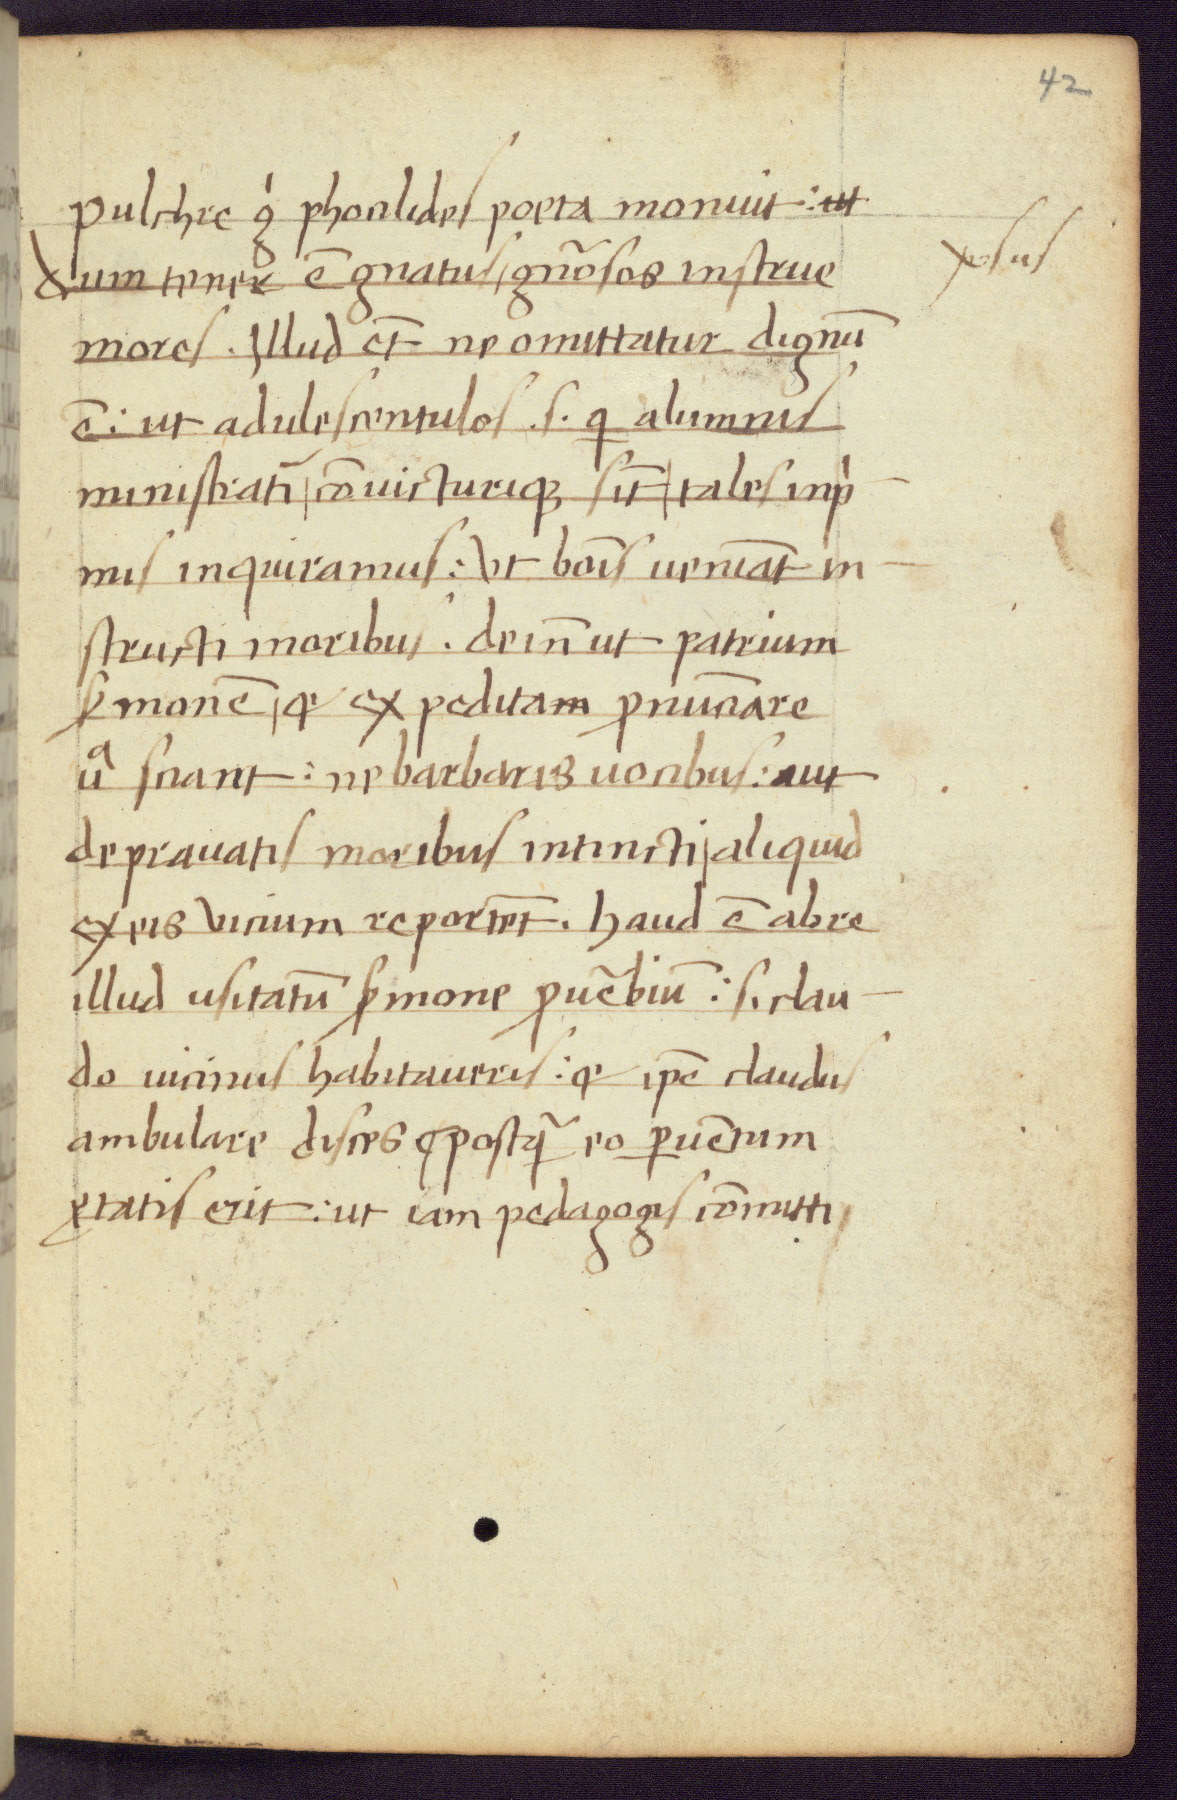 42
pulchre gͥ phocilides poeta monuit : ut
Dum tener ē gnatus, gn̄osos instrue
uersus
mores . Illud et̄ ne omittatur dignū
ē : ut adulescentulos . s . q alumnis
ministrat̄i, cōuicturiqꝫ sīt, tales inpͥ-
mis inquiramus : Vt bōis ueniāt in-
structi moribus . dein̄ ut patrium
ꝑmonē, & expeditam ꝓnūciare
uͣ sciant : ne barbaris uocibus : aut
deprauatis moribus intincti, aliquid
ex eis Vicium reportēt . haud ē abre
illud usitatū ẜmone ꝓuēbiū : si clau-
do uicinus habitaueris : & ip̄e claudus
ambulare disces Postq̄ eo ꝑuētum
ętatis erit : ut iam pedagogis cōmitti